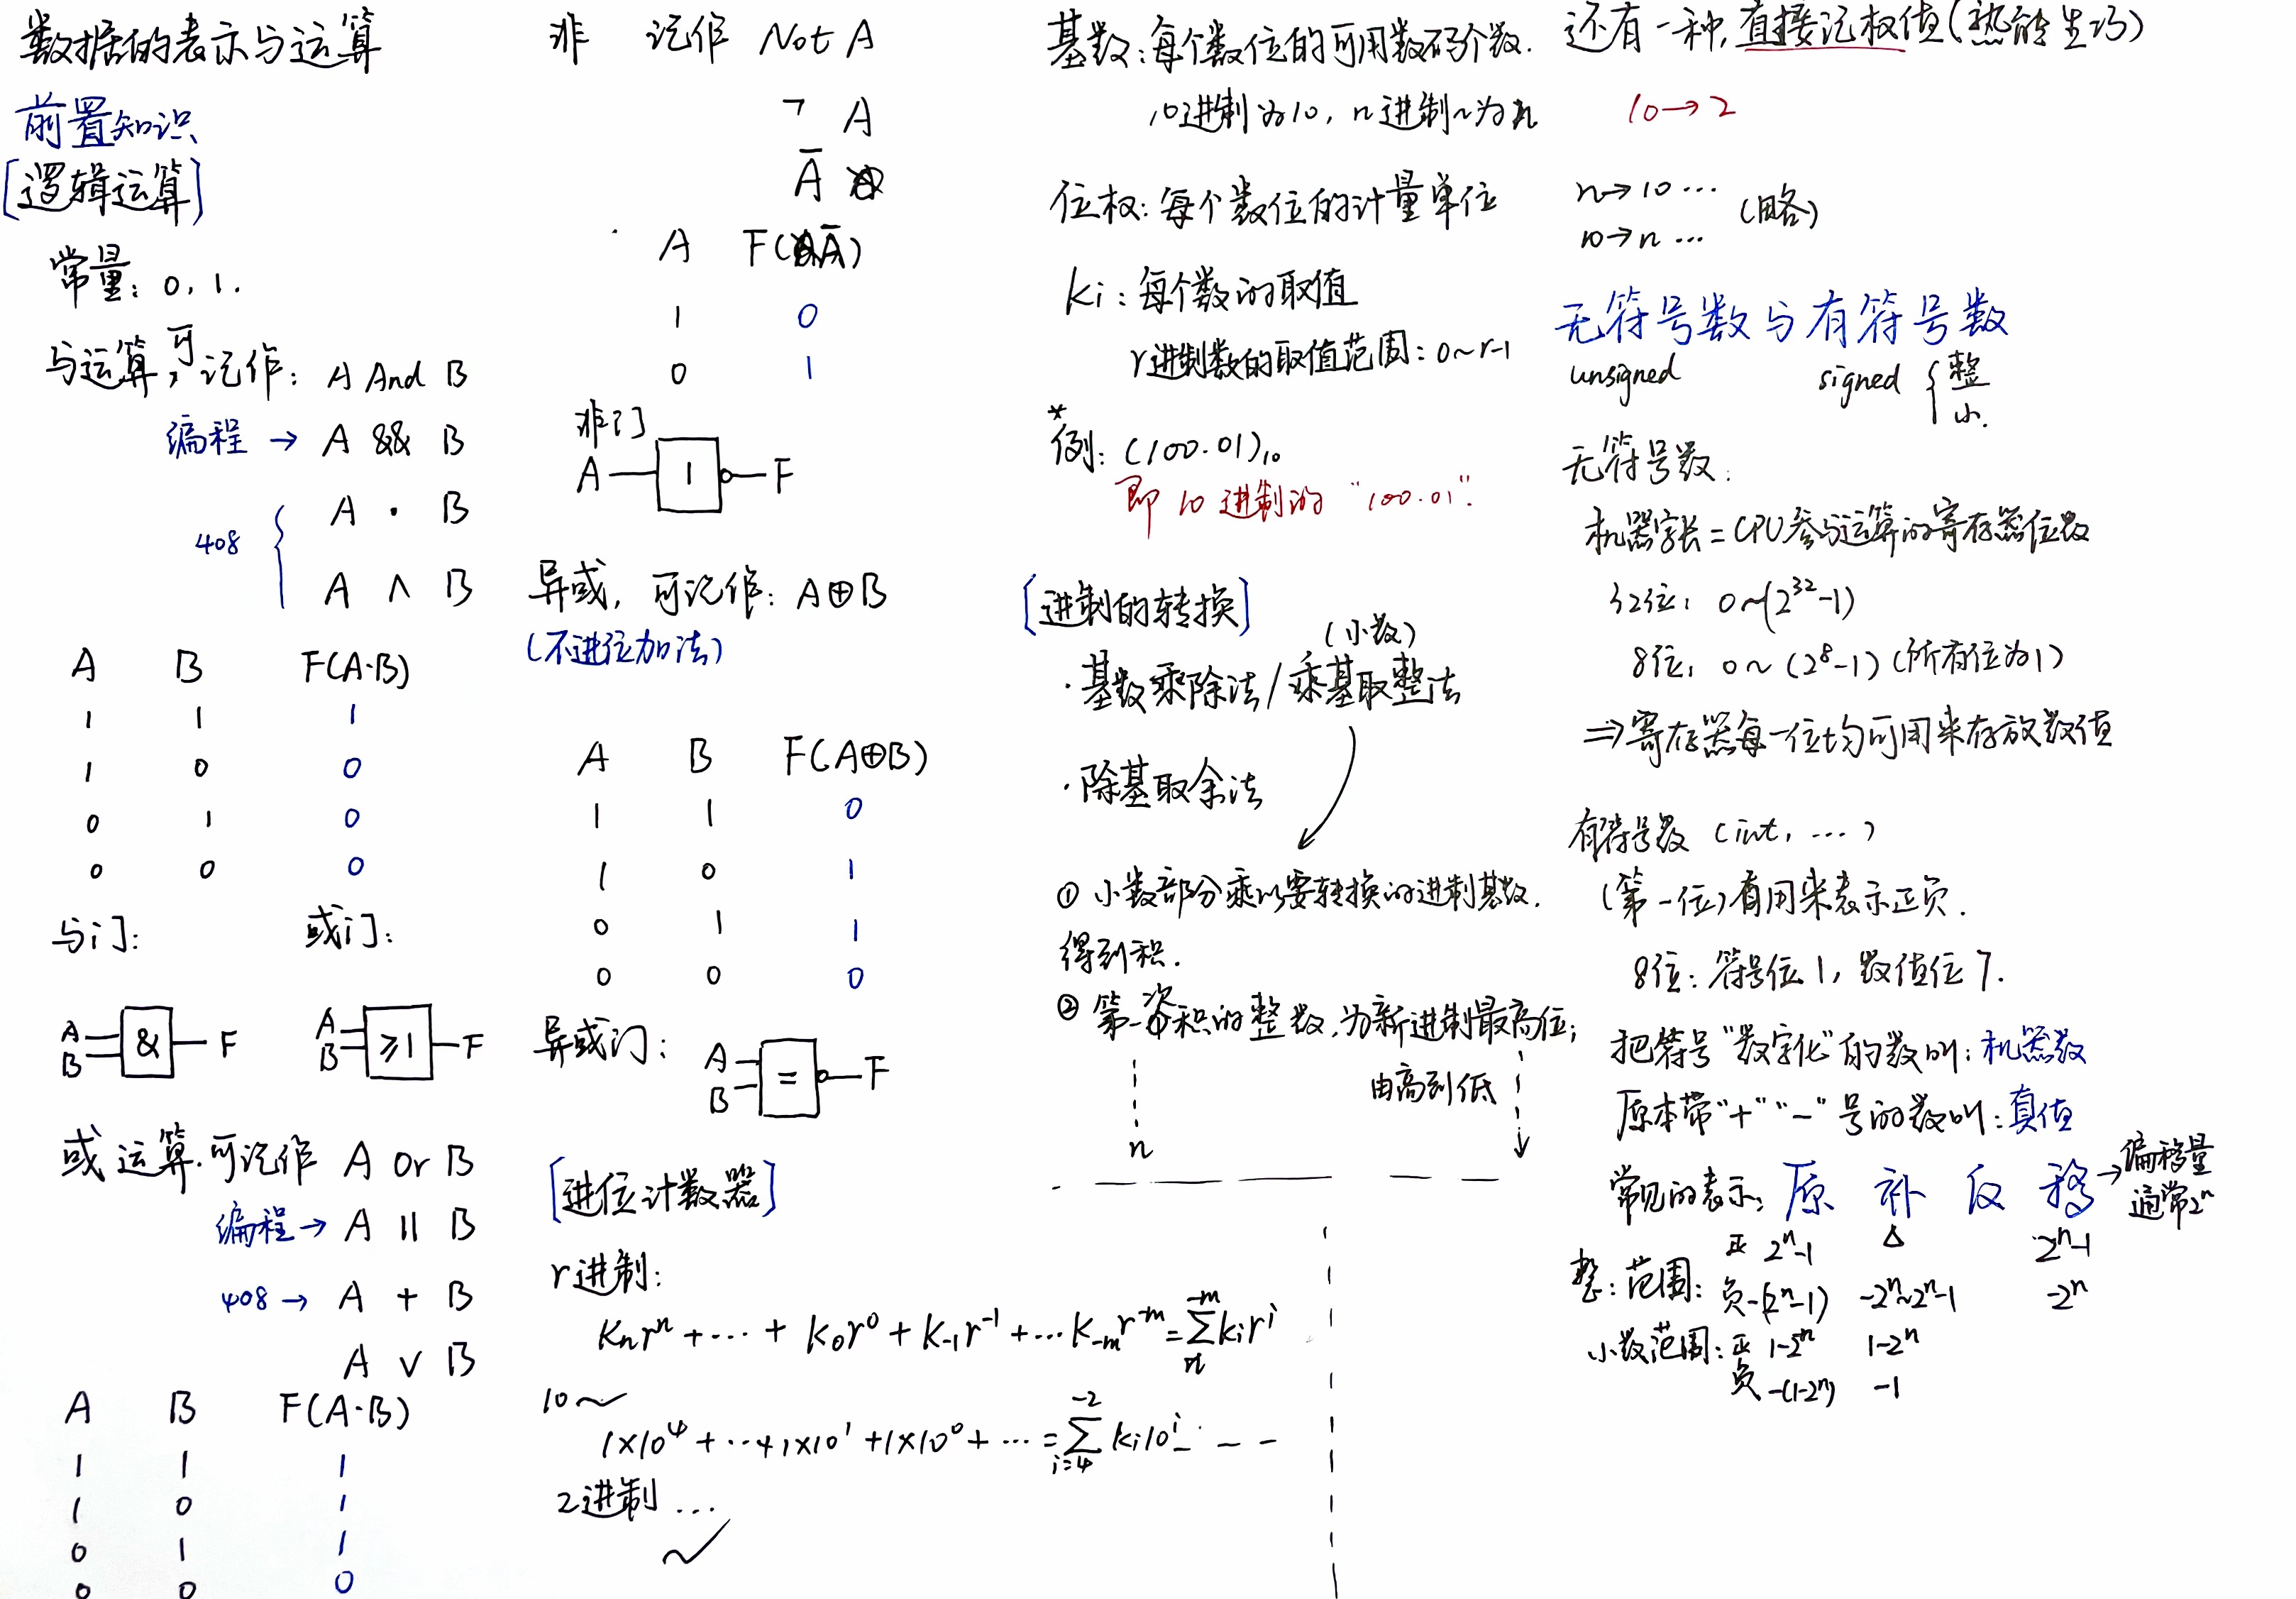 数据的表示与运算
前置知识
[逻辑运算]
常量：0，1.
与运算，可记作：A And B
编程 → A && B
408 { A · B
A ∧ B
A B F(A·B)
1 1 1
1 0 0
0 1 0
0 0 0
与门： 或门：
A B & F A B ≥1 F
或运算.可记作 A Or B
编程 → A || B
408 → A + B
A ∨ B
A B F(A·B)
1 1 1
1 0 1
0 1 1
0 0 0
非 记作 Not A
¬ A
Ā
A F(Ā)
1 0
0 1
非门
A 1 F
异或，可记作：A⊕B
(不进位加法)
A B F(A⊕B)
1 1 0
1 0 1
0 1 1
0 0 0
异或门： A B = F
[进位计数器]
r进制：
Knrⁿ + ··· + K₀r⁰ + K₋₁r⁻¹ + ··· K₋mr⁻ᵐ = ∑ kirⁱ
-m
n
10~
1×10⁴ + ··· + 1×10¹ + 1×10⁰ + ··· = ∑ ki10ⁱ
-2
i=4
2进制 ...
基数：每个数位的可用数码个数.
10进制为10，n进制~为n
位权：每个数位的计量单位
Ki：每个数的取值
r进制数的取值范围：0~r-1
*例：(100.01)₁₀
即 10 进制的 "100.01".
[进制的转换]
(小数)
·基数乘除法/乘基取整法
·除基取余法
① 小数部分乘以要转换的进制基数.
得到积.
② 第一次积的整数，为新进制最高位；
由高到低
n
还有一种，直接记权值(熟能生巧)
10→2
n→10 ...
10→n ...
(略)
无符号数与有符号数
unsigned signed { 整
小.
无符号数：
机器字长=CPU参与运算的寄存器位数
32位：0~(2³²-1)
8位：0~(2⁸-1)(所有位为1)
⇒寄存器每一位均可用来存放数值
有符号数 (int, ...)
(第一位)有用来表示正负.
8位：符号位1，数值位7.
把符号"数字化"的数叫：机器数
原本带"+""-"号的数叫：真值
常见的表示：原 补 反 移 → 偏移量
通常2ⁿ
正 2ⁿ-1 △ 2ⁿ-1
整：范围：负-(2ⁿ-1) -2ⁿ~2ⁿ-1 -2ⁿ
小数范围：正 1-2ⁿ 1-2ⁿ
负 -(1-2ⁿ) -1